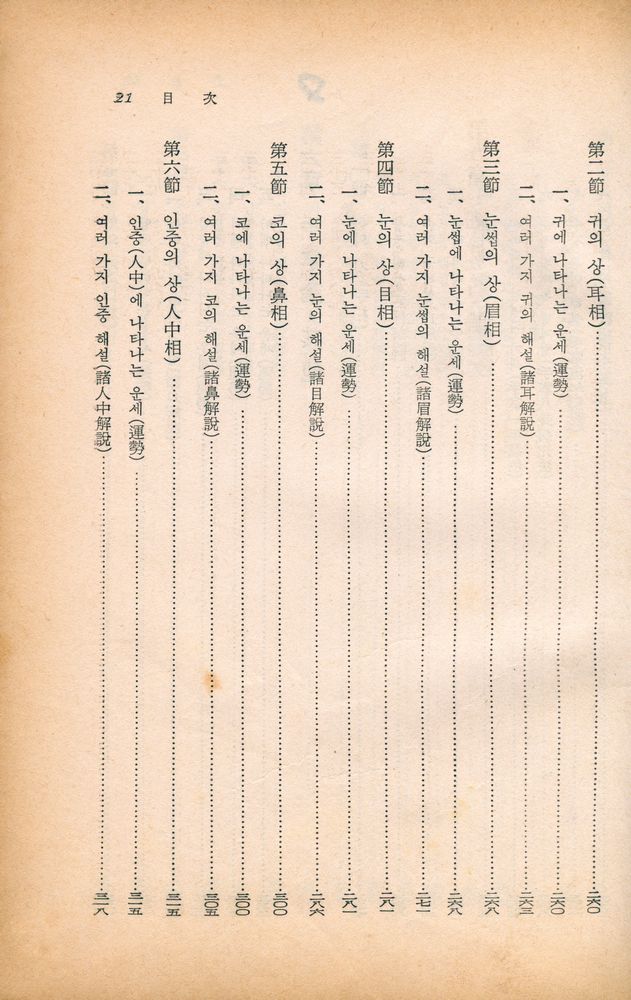 21 目 次
第二節 귀의 상(耳相)……二六〇
一、귀에 나타나는 운세(運勢)……二六〇
二、여러 가지 귀의 해설(諸耳解說)……二六三
第三節 눈썹의 상(眉相)……二六八
一、눈썹에 나타나는 운세(運勢)……二六八
二、여러 가지 눈썹의 해설(諸眉解說)……二七一
第四節 눈의 상(目相)……二八一
一、눈에 나타나는 운세(運勢)……二八一
二、여러 가지 눈의 해설(諸目解說)……二八六
第五節 코의 상(鼻相)……三〇〇
一、코에 나타나는 운세(運勢)……三〇〇
二、여러 가지 코의 해설(諸鼻解說)……三〇五
第六節 인중의 상(人中相)……三一五
一、인중(人中)에 나타나는 운세(運勢)……三一五
二、여러 가지 인중 해설(諸人中解說)……三一八